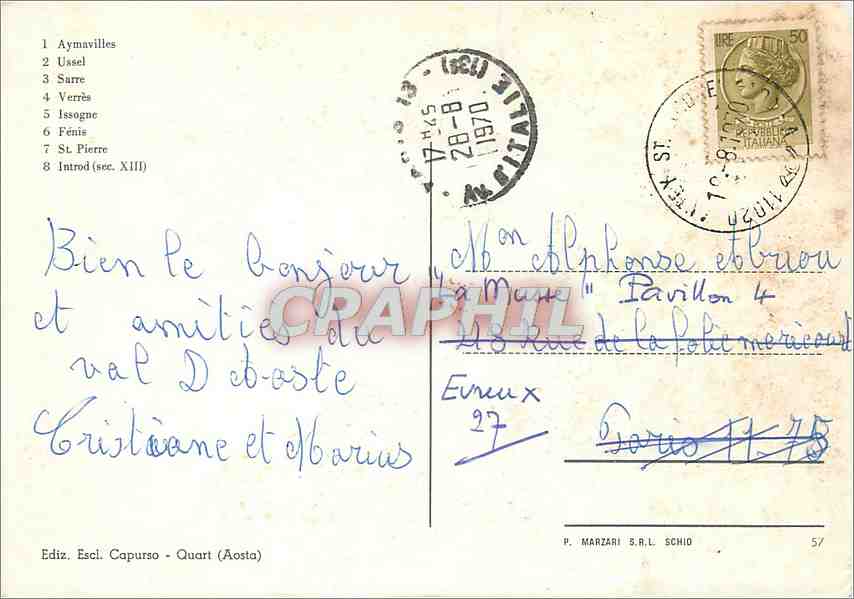 1 Aymavilles
2 Ussel
3 Sarre
4 Verrès
5 Issogne
6 Fénis
7 St. Pierre
8 Introd (sec. XIII)
LIRE 50
REPUBBLICA
ITALIANA
11020
AV. D'ITALIE (13e)
17H
28-8
1970
Bien le bonjour
et amitiés du
val D Aoste
Cristiane et Marius
Mon Alphonse Abriou
"La Musse" Pavillon 4
48 Rue de la folie méricourt
Evreux
27
Paris 11-75
CPAPHIL
Ediz. Escl. Capurso - Quart (Aosta)
P. MARZARI S.R.L. SCHIO
57